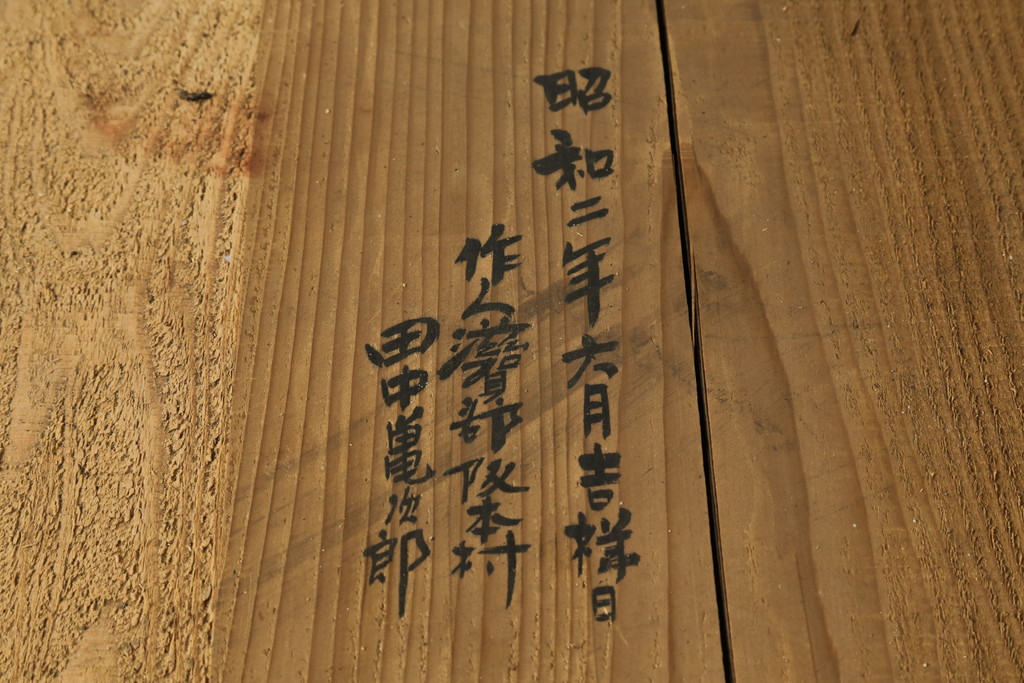 昭和二年六月吉様日
作人滋賀郡阪本村
田中亀次郎